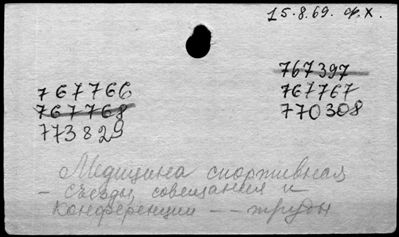 15.8.69. ф.х.
767766
767768
773829
767397
767767
770308
Медицина спортивная
- съезды, совещания и
конференции -- труды